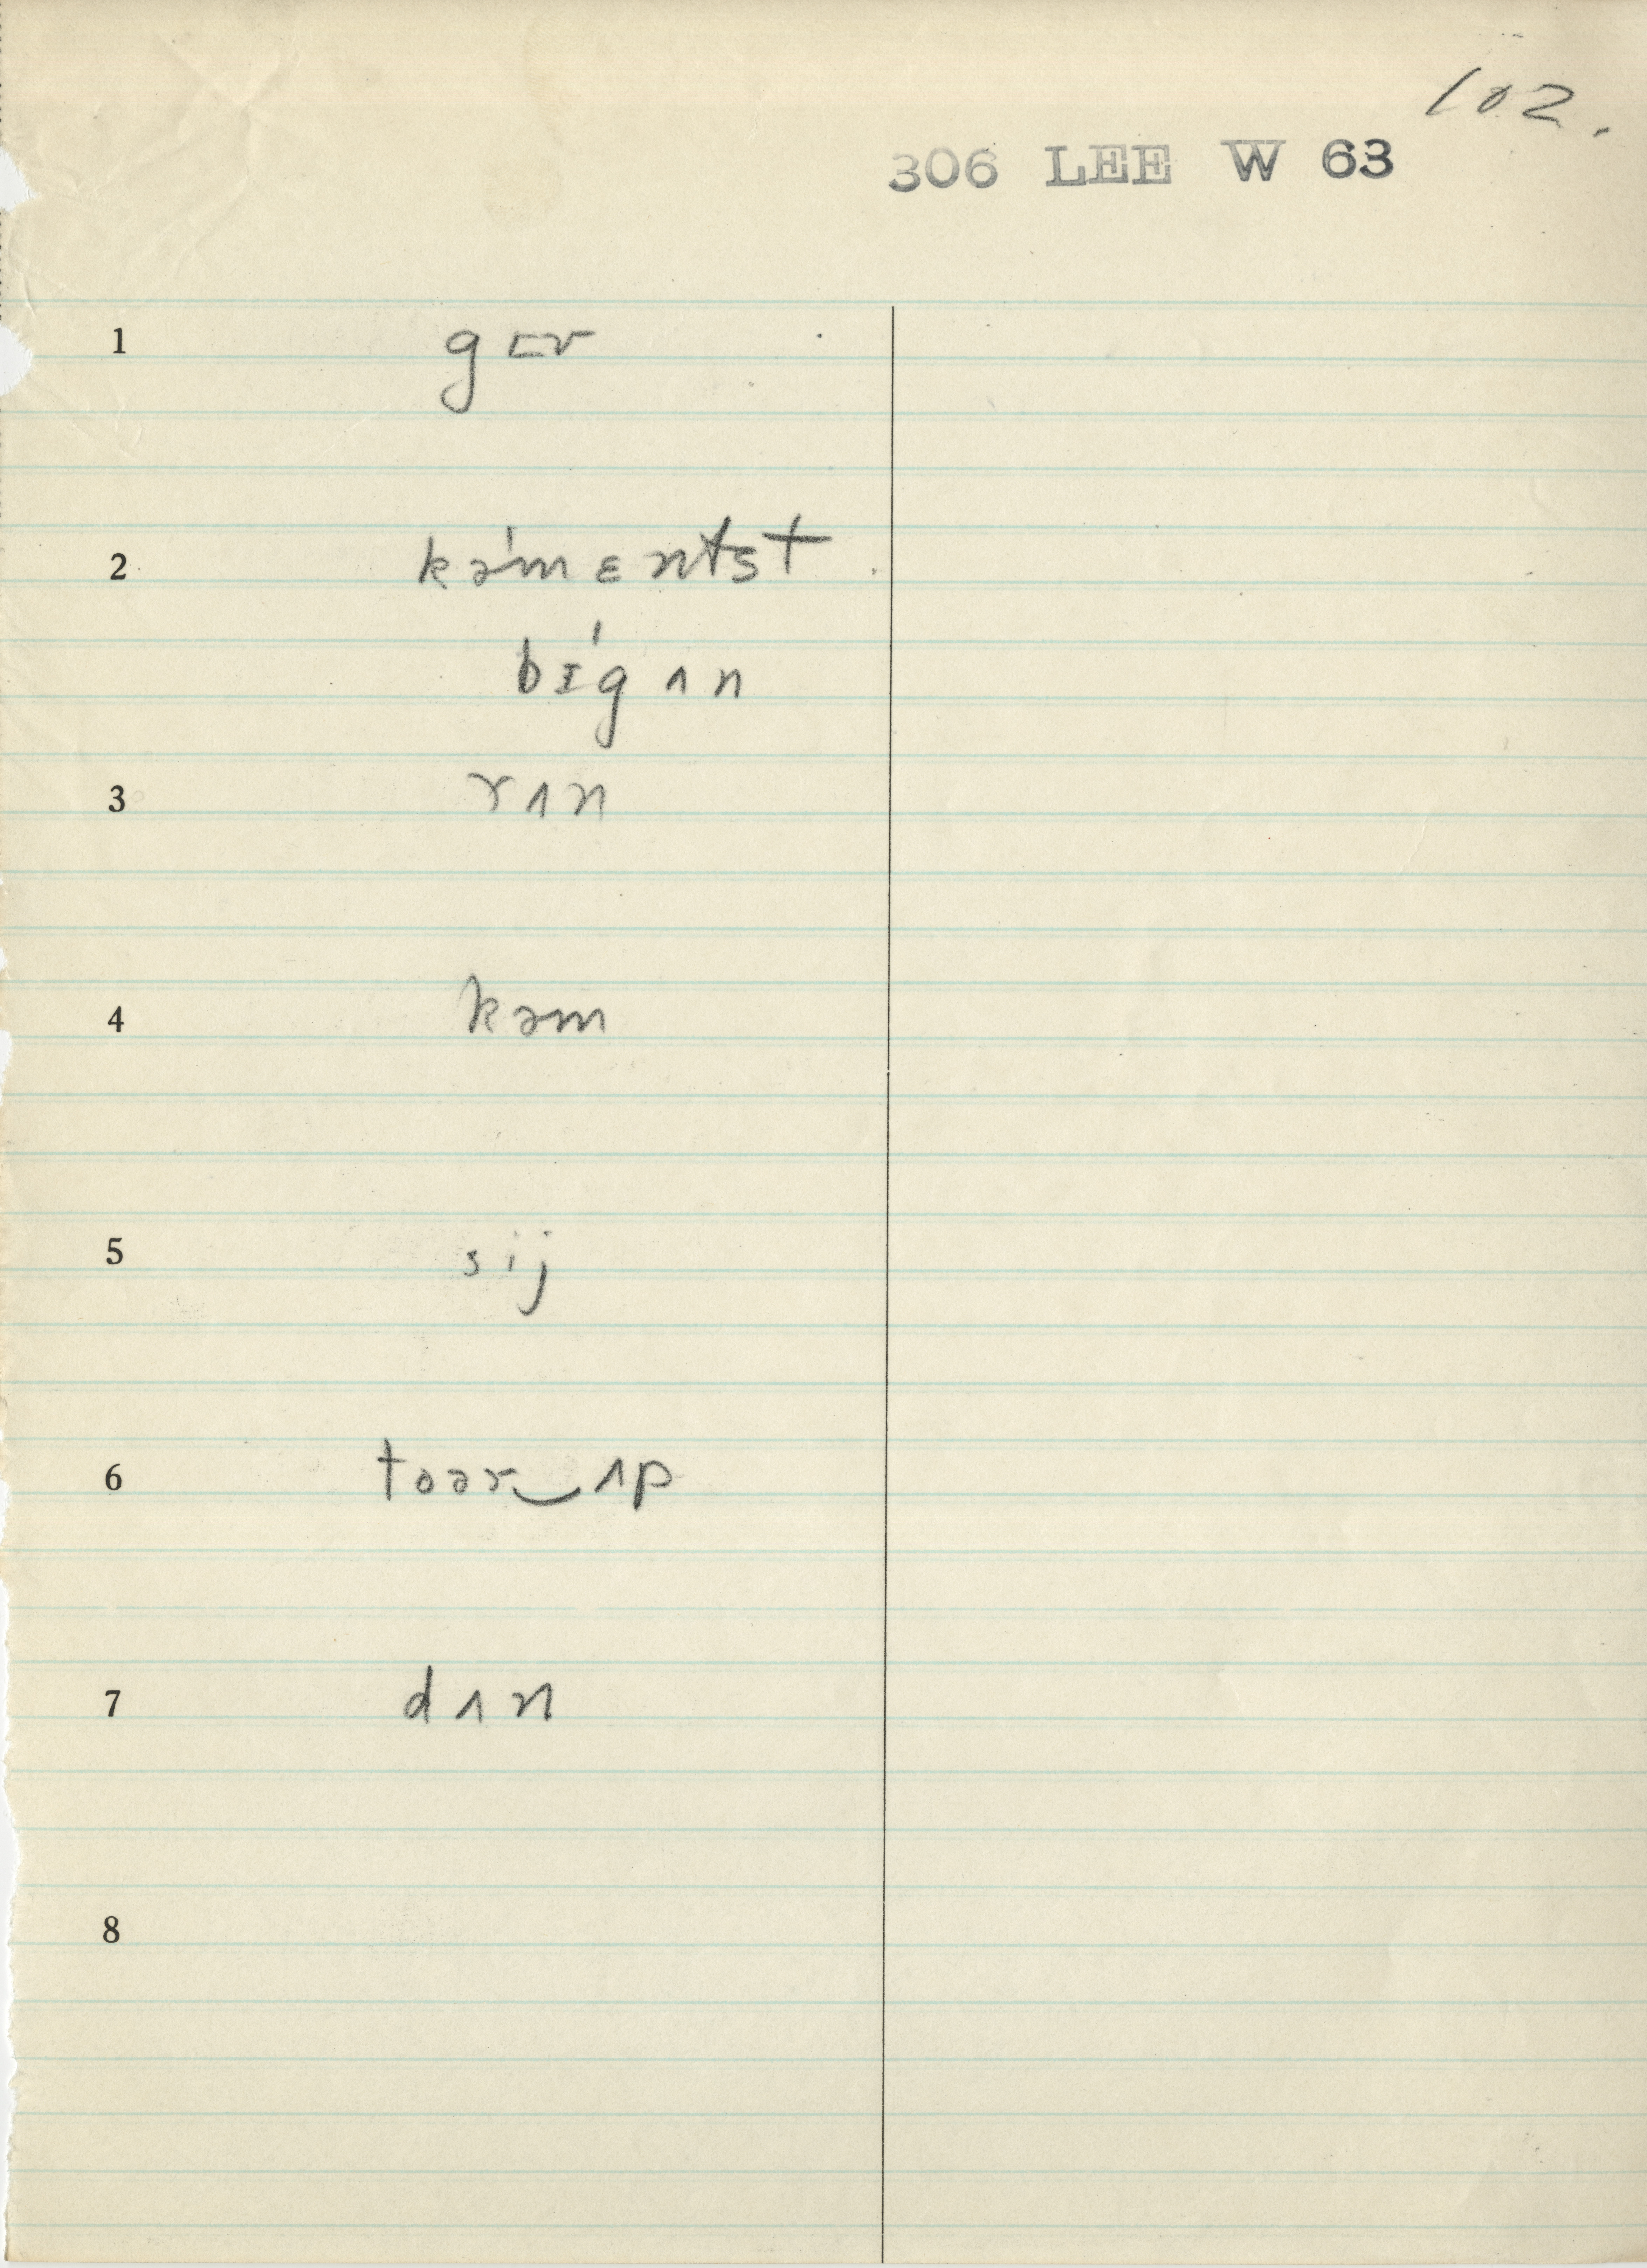 102.
306 LEE W 63
1 gɪv
2 kə'mɛntst
bɪ'gʌn
3 rʌn
4 kəm
5 sij
6 toər‿ʌp
7 dʌn
8